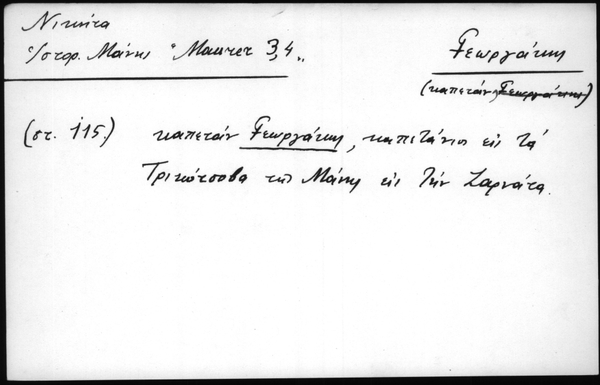 Νικήτα
Ἱστορ. Μάνης "Maurer 3,4„
Γεωργάκης
(καπετάν Γεωργάκης)
(στ. 115.) καπετάν Γεωργάκης, καπετάνιος εἰς τὰ
Τρικότσοβα τῆς Μάνης εἰς τὴν Ζαρνάτα.